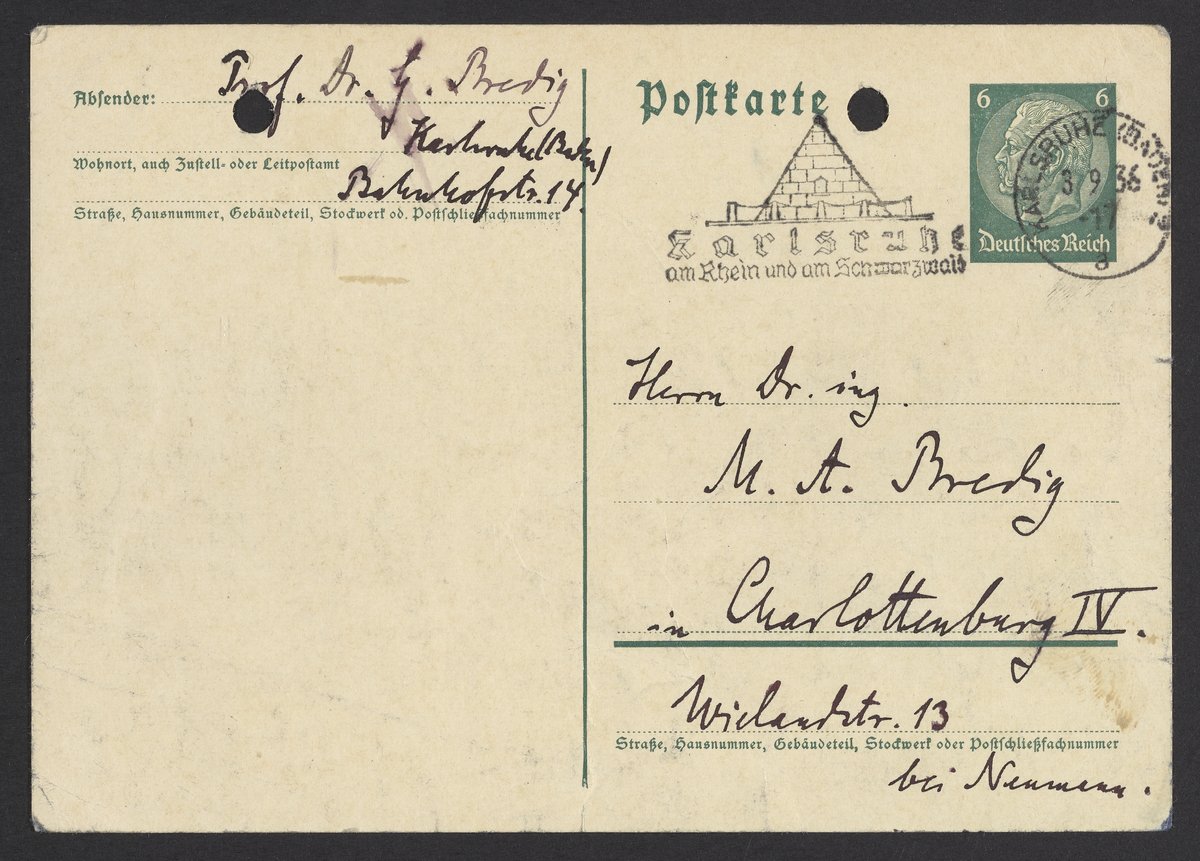 Absender: Prof. Dr. G. Bredig
Karlsruhe (Baden)
Wohnort, auch Zustell- oder Leitpostamt
Bahnhofstr. 14.
Straße, Hausnummer, Gebäudeteil, Stockwerk od. Postschließfachnummer
Postkarte
Karlsruhe
am Rhein und am Schwarzwald
6 6
Deutsches Reich
KARLSRUHE (BADEN)
3 9 36
-17
a
Herrn Dr. ing.
M. A. Bredig
in Charlottenburg IV.
Wielandstr. 13
Straße, Hausnummer, Gebäudeteil, Stockwerk oder Postschließfachnummer
bei Neumann.